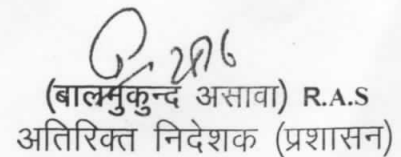 (बालमुकुन्द असावा) R.A.S
अतिरिक्त निदेशक (प्रशासन)